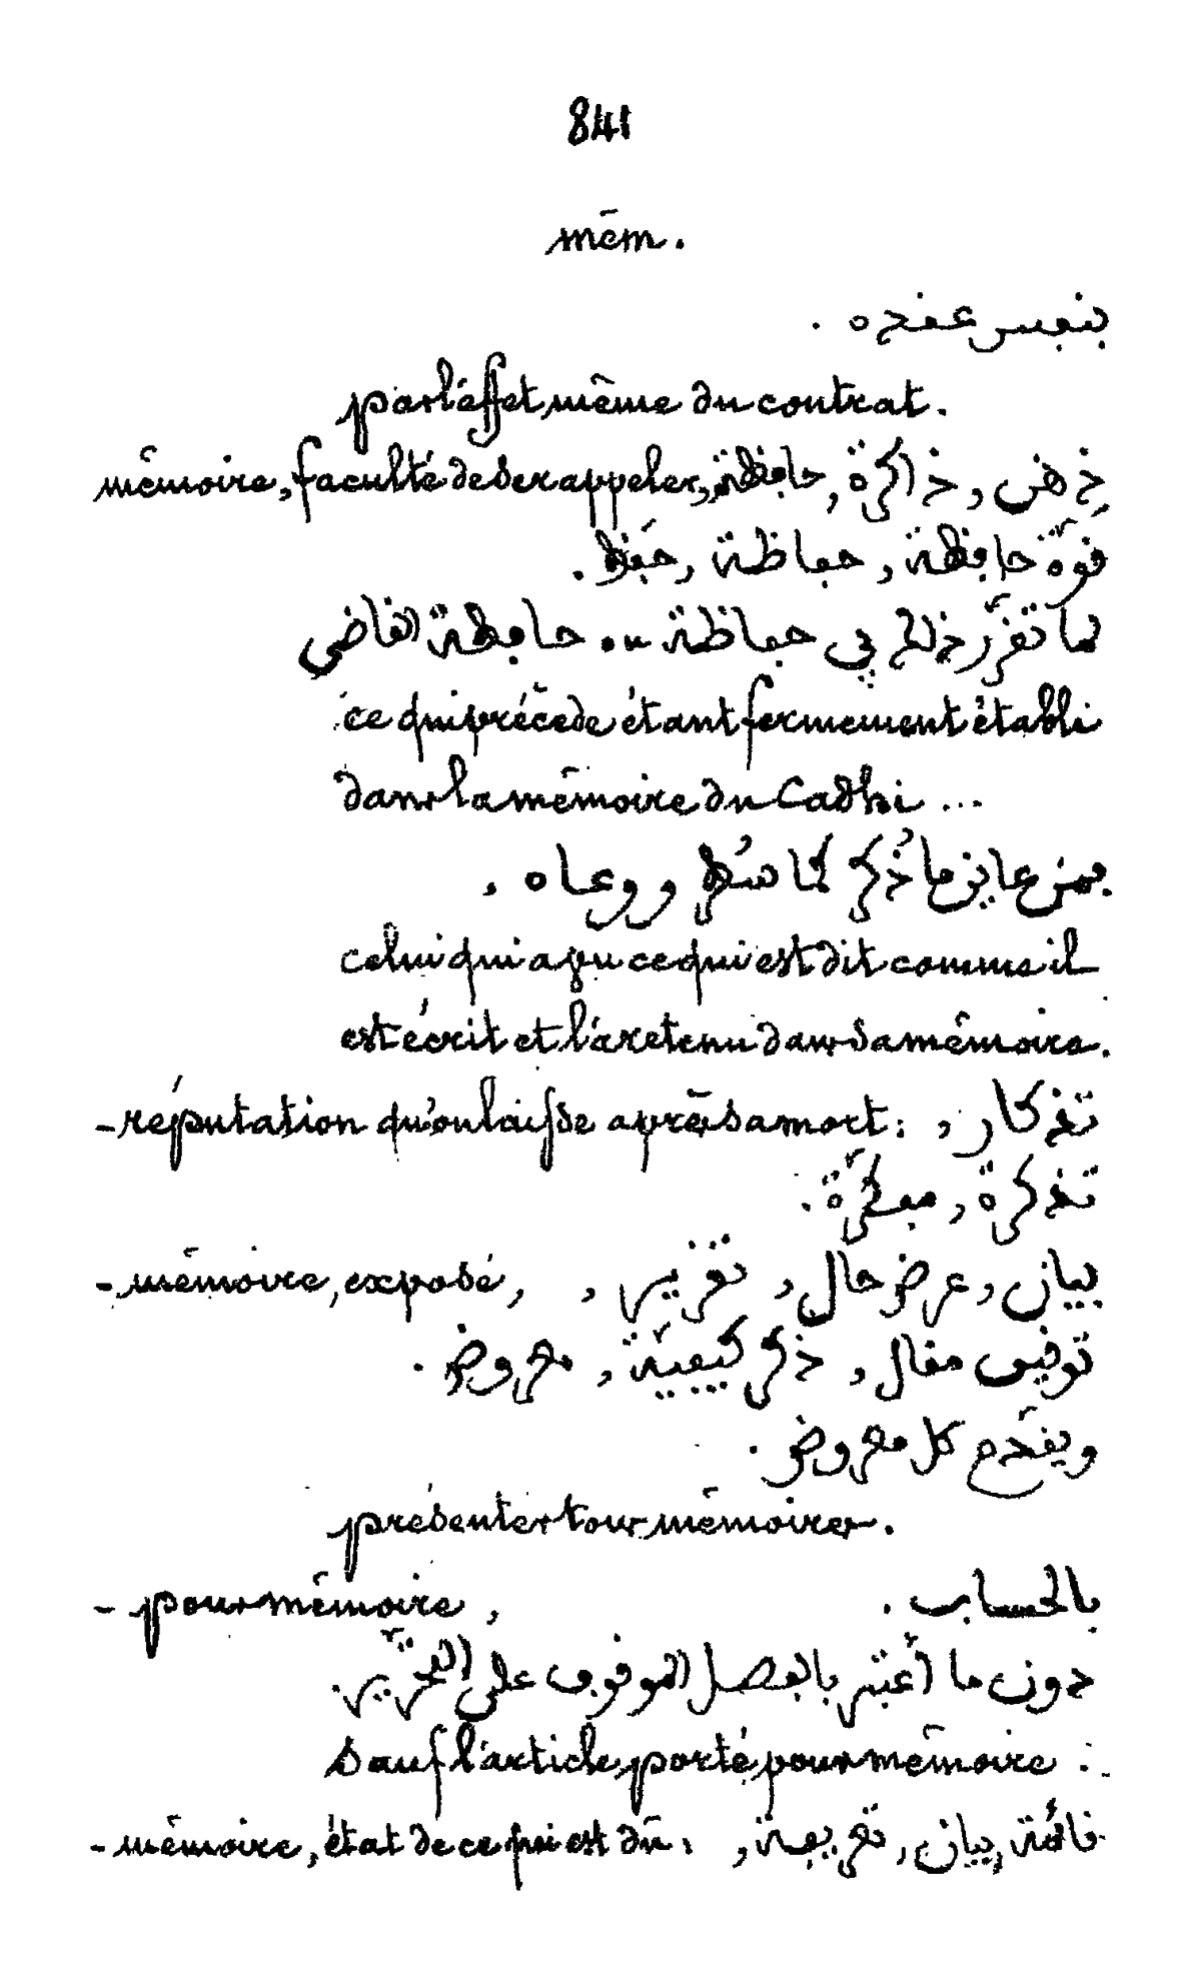 841
mêm.
بنفس عقده .
par l'effet même du contrat.
mémoire, faculté de se rappeler, ذهن , ذاكرة , حافظة ,
قوّة حافظة , حفاظة , حفظ .
لما تقرّر ذلك في حفاظة ou حافظة القاضي
ce qui précède étant fermement établi
dans la mémoire du Cadhi ...
فمن عاين ما ذُكر كما سُطر ووعاه .
celui qui a vu ce qui est dit comme il
est écrit et l'a retenu dans sa mémoire.
- réputation qu'on laisse après sa mort : تذكار ,
تذكرة , مفكّرة .
- mémoire, exposé, بيان , عرض حال , تقرير ,
توقيف مقال , ذكر كيفيّة , معروض .
ويقدّم كل معروض .
présenter tous mémoires.
- pour mémoire, بالحساب .
دون ما أعتبر بالفصل الموقوف على التحرير .
sauf l'article porté pour mémoire .
- mémoire, état de ce qui est dû , قائمة , بيان , تعريفة ,